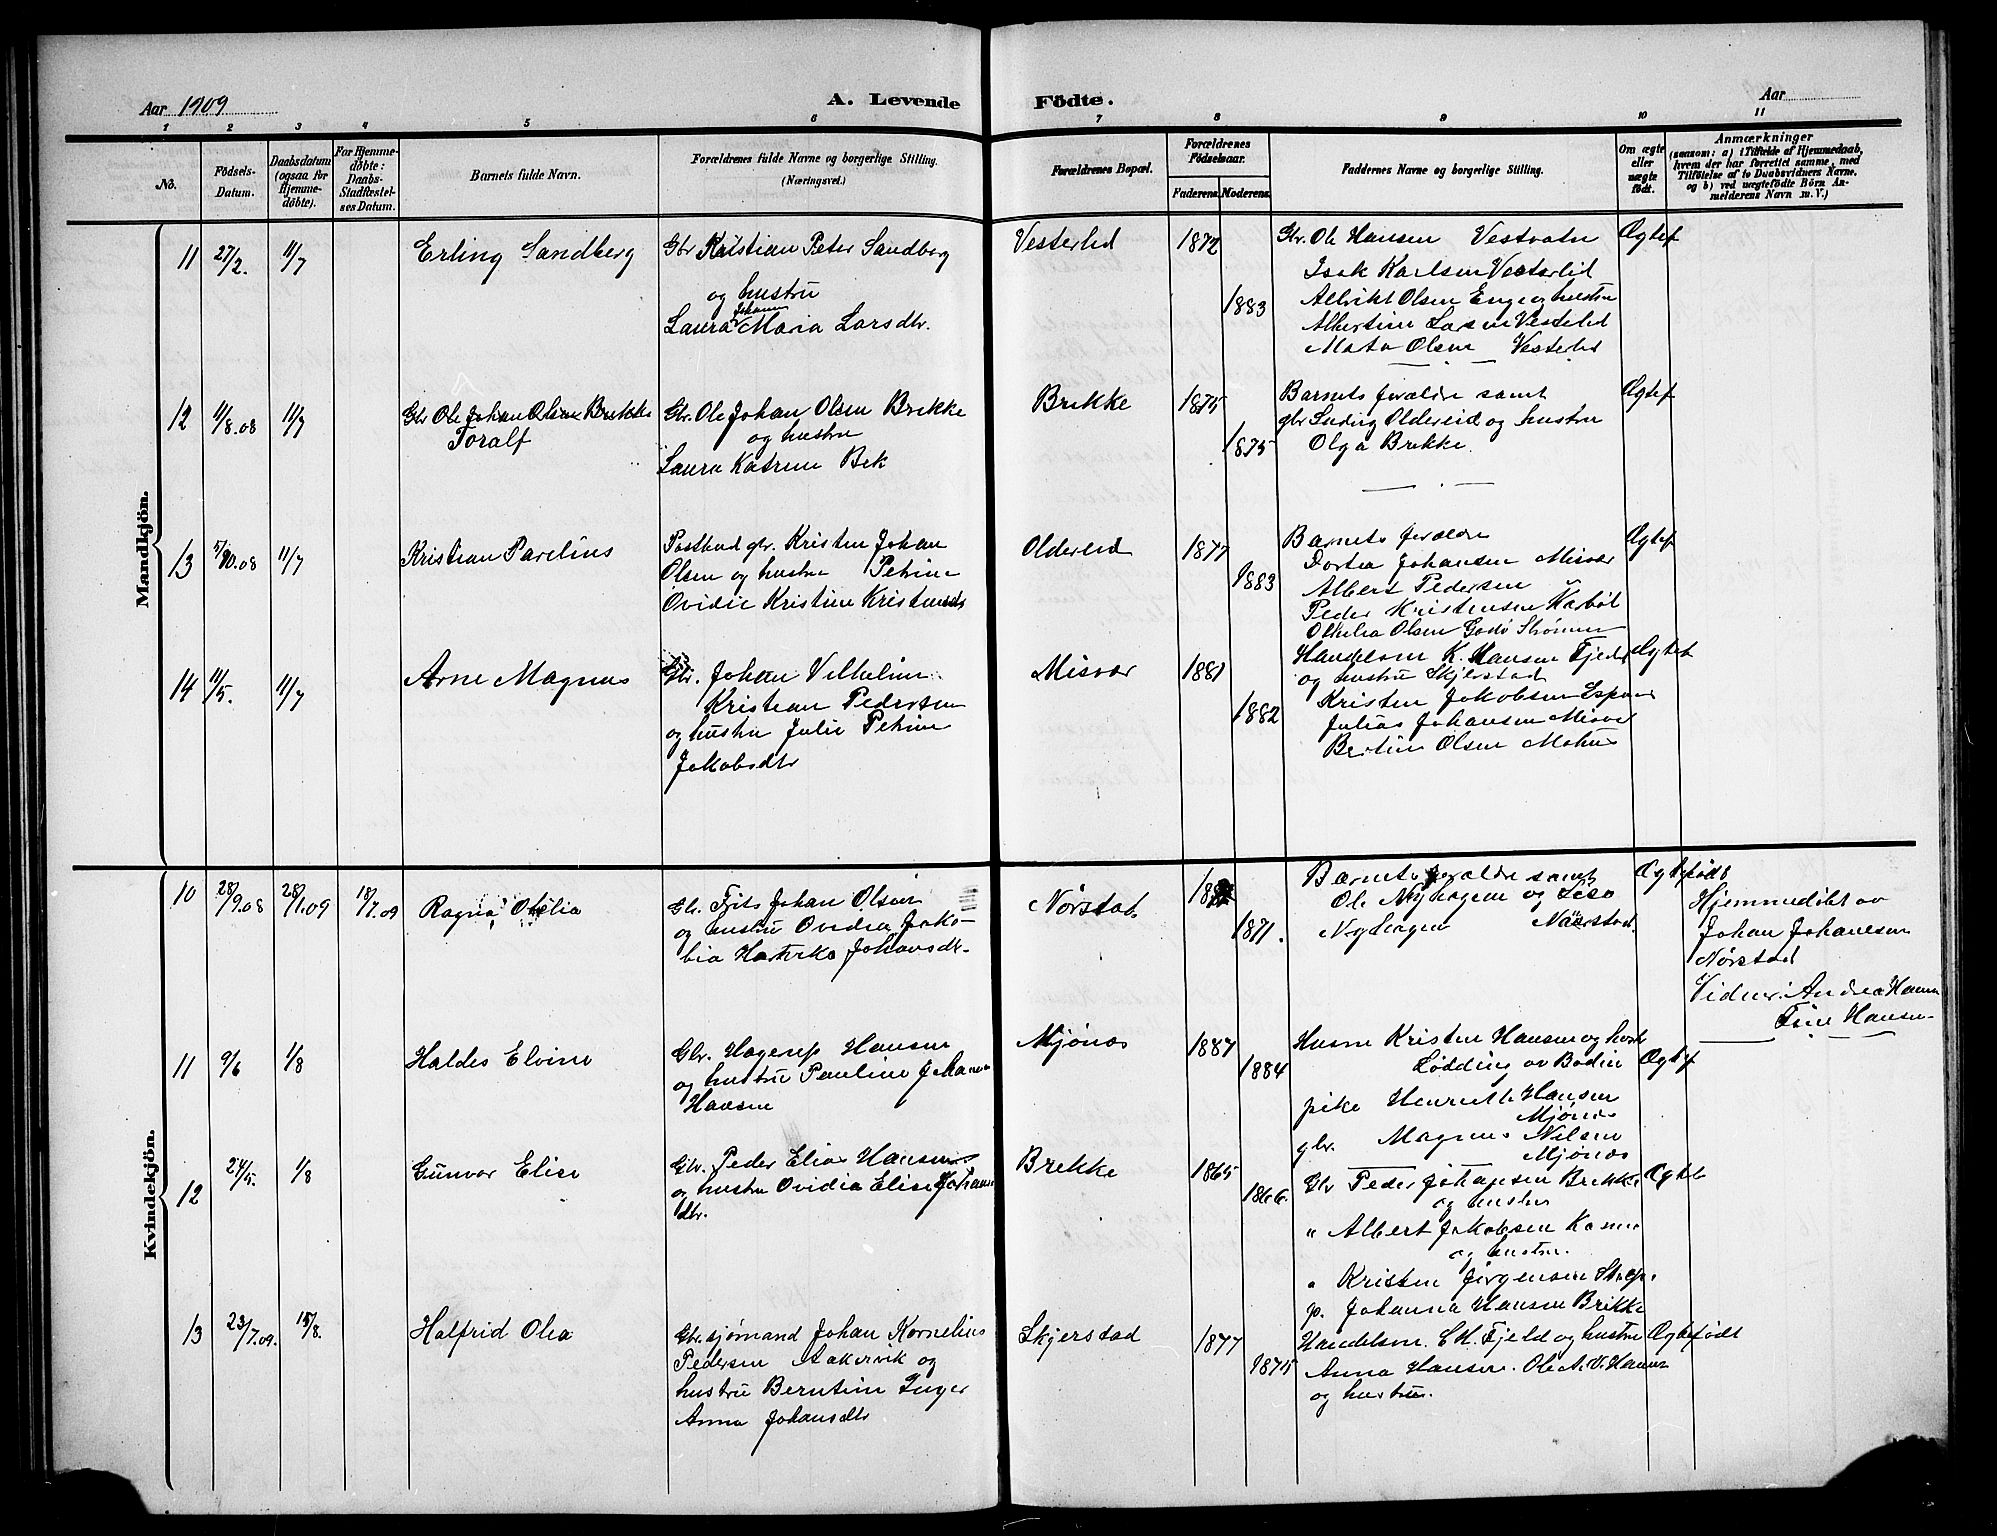 Aar 1909
A. Levende
Födte.
Aar
1 2 3 4 5 6 7 8 9 10 11
No.
Födsels-Datum.
Daabsdatum (ogsaa for Hjemme-døbte).
For Hjemme-døbte: Daabs-Stadfæstel-ses Datum.
Barnets fulde Navn.
Forældrenes fulde Navne og borgerlige Stilling.
(Næringsvei.)
Forældrenes Bopæl.
Forældrenes Födselsaar.
Faderens. Moderens.
Faddernes Navne og borgerlige Stilling.
Om ægte eller uægte født.
Anmærkninger
(saasom: a) i Tilfælde af Hjemmedaab, hvem der har forrettet samme, med Tilföielse af to Daabsvidners Navne, og b) ved uægtefödte Börn An-melderens Navn m. V.)
Mandkjön.
11 27/2. 11/7 Erling Sandberg
Gbr Kristian Peter Sandberg
og hustru
Johann
Laura Maria Larsdtr.
Vesterlid 1872 1883
Gbr. Ole Hansen Vestvatn
Isak Karlsen Vesterlid
Allrikt Olsen Enge og hustru
Albertine Larsen Vesterlid
Olsen Vesterlid
Ægtef
12 11/8.08 11/7 Gbr Ole Johan Olsen Brekke
Toralf
Gbr. Ole Johan Olsen Brekke
og hustru
Laura Katrine Bek
Brekke 1875 1875
Barnets forældre samt
gbr Ludvig Oldereid og hustru
Olga Brekke.
Ægtef
13 5/10.08 11/7 Kristian Parelius
Postbud gbr. Kristen Johan
Olsen og hustru Petrine
Ovidie Kristine Kristensdtr
Oldereid 1877 1883
Barnets forældre
Dortea Johansen Misvær
Albert Pedersen
Peder Kristensen Karbøl
Othelia Olsen Godø Strømmen
Ægtef
14 11/5. 11/7 Arne Magnus
Gbr. Johan Vilhelm
Kristian Pedersen
og hustru Julie Petrine
Jakobsdtr
Misvær 1881 1882
Handelsm K. Hansen Fjeld
og hustru Skjerstad
Kristen Jakobsen
Julias Johansen Misvær
Olsen
Ægtef
Kvindekjön.
10 28/9.08 28/1.09 18/7.09 Ragna Otelia
Gbr. Frits Johan Olsen
og hustru Ovidia Jako-
bia Johansdtr.
Nørstad 1871.
Barnets forældre samt
Ole Nyhagen og
Nyhagen Nørstad.
Ægtefødt
Hjemmedøbt av
Johan Johansen
Nørstad
Vidner: Andrea Hansen
Hansen
11 9/6 1/8 Haldis Elvine
Gbr. Hagerup Hansen
og hustru Pauline Johanne
Hansen
Mjønes 1887 1884
Husm Kristen Hansen og hustr
Lødding av Bodin
pike Henriette Hansen
Mjønes
gbr. Magnus Nilsen
Mjønes
Ægtef
12 24/5. 1/8 Gunvor Elise
Gbr. Peder Elias Hansen
og hustru Ovidia Elise Johans
dtr.
Brekke 1865 1866.
Gbr Peder Johansen Brekke
og hustru
" Albert Jakobsen
og hustru.
" Kristen Jørgensen
p. Johanna Hansen Brekke
Ægtef
13 23/7.09. 15/8. Halfrid Olea
Gbr. sjømand Johan Kornelius
Pedersen Aakervik og
hustru Berntine Inger
Anna Johansdtr
Skjerstad 1877 1875
Handelsm. Fjeld og hustru
Anna Hansen. Ole A. V. Hansen
og hustru.
Ægtefødt